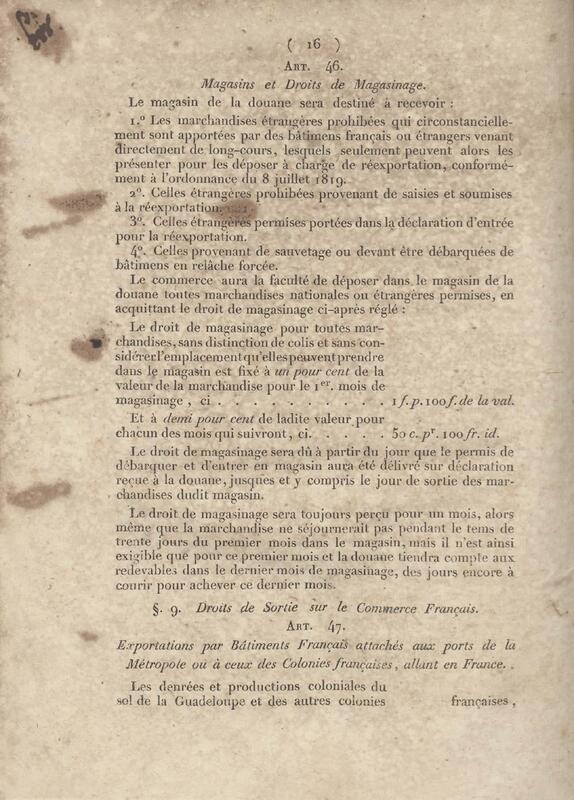 ( 16 )
ART. 46.
Magasins et Droits de Magasinage.
Le magasin de la douane sera destiné à recevoir :
1.º Les marchandises étrangères prohibées qui circonstancielle-
ment sont apportées par des bâtimens français ou étrangers venant
directement de long-cours, lesquels seulement peuvent alors les
présenter pour les déposer à charge de réexportation, conformé-
ment à l'ordonnance du 8 juillet 1819.
2º. Celles étrangères prohibées provenant de saisies et soumises
à la réexportation.
3º. Celles étrangères permises portées dans la déclaration d'entrée
pour la réexportation.
4º. Celles provenant de sauvetage ou devant être débarquées de
bâtimens en relâche forcée.
Le commerce aura la faculté de déposer dans le magasin de la
douane toutes marchandises nationales ou étrangères permises, en
acquittant le droit de magasinage ci-après réglé :
Le droit de magasinage pour toutes mar-
chandises, sans distinction de colis et sans con-
sidérer l'emplacement qu'elles peuvent prendre
dans le magasin est fixé à un pour cent de la
valeur de la marchandise pour le 1er. mois de
magasinage, ci . . . . . . . . . . 1 f. p. 100 f. de la val.
Et à demi pour cent de ladite valeur pour
chacun des mois qui suivront, ci. . . . . 50 c. pr. 100 fr. id.
Le droit de magasinage sera dû à partir du jour que le permis de
débarquer et d'entrer en magasin aura été délivré sur déclaration
reçue à la douane, jusques et y compris le jour de sortie des mar-
chandises dudit magasin.
Le droit de magasinage sera toujours perçu pour un mois, alors
même que la marchandise ne séjournerait pas pendant le tems de
trente jours du premier mois dans le magasin, mais il n'est ainsi
exigible que pour ce premier mois et la douane tiendra compte aux
redevables dans le dernier mois de magasinage, des jours encore à
courir pour achever ce dernier mois.
§. 9. Droits de Sortie sur le Commerce Français.
ART. 47.
Exportations par Bâtiments Français attachés aux ports de la
Métropole ou à ceux des Colonies françaises, allant en France.
Les denrées et productions coloniales du
sol de la Guadeloupe et des autres colonies françaises,